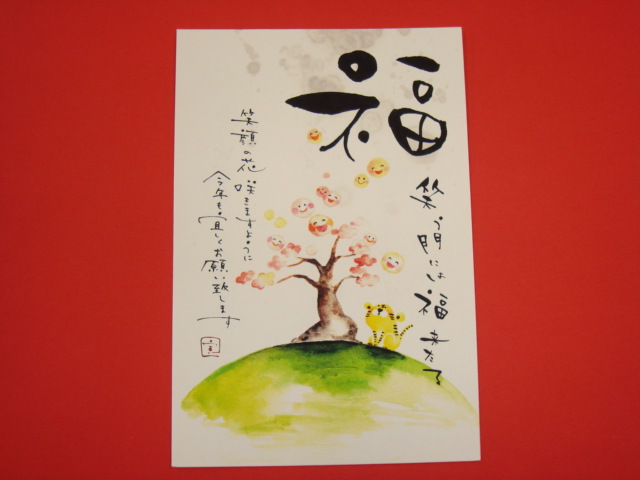 福
笑う門には福来たる
笑顔の花
咲きますように
今年も宜しくお願い致します